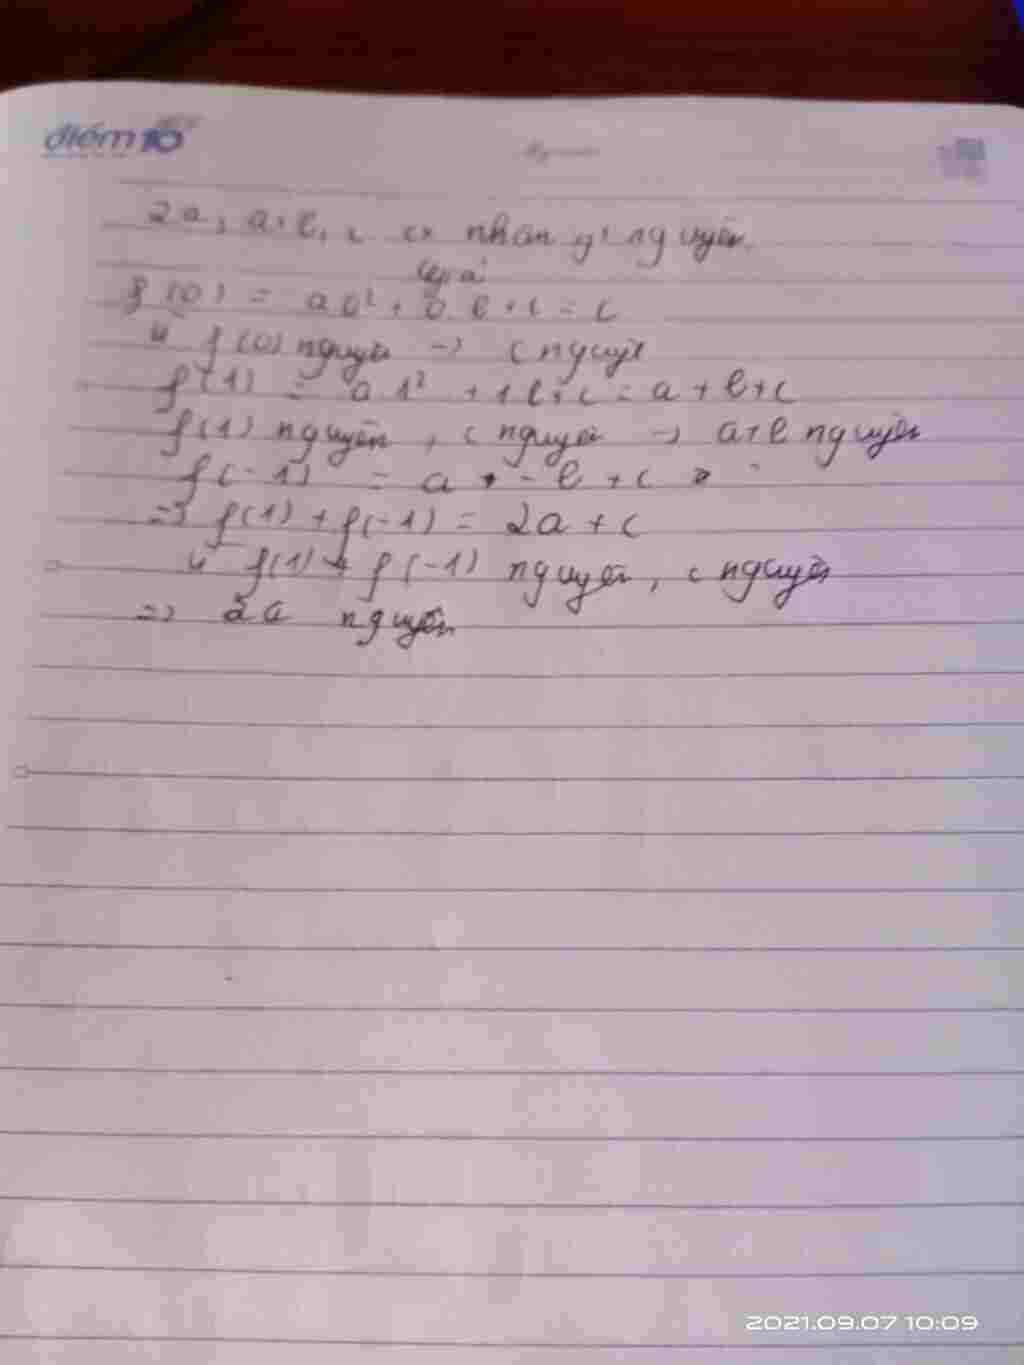 điểm 10
2a, a+b, c có nhận giá trị nguyên.
f(0) = a.0² + 0.b + c = c
Vì f(0) nguyên → c nguyên
f(1) = a.1² + 1b+c = a+b+c
f(1) nguyên, c nguyên → a+b nguyên
f(-1) = a - b + c
=> f(1) + f(-1) = 2a + c
Vì f(1) + f(-1) nguyên, c nguyên
=> 2a nguyên
2021.09.07 10:09